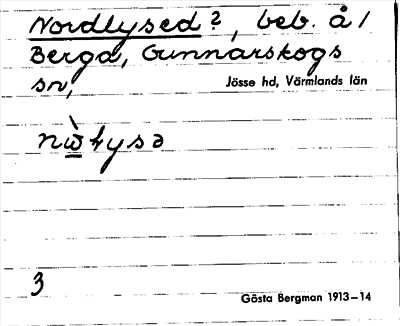 Nordlysed?, beb. å 1
Berga, Gunnarskogs
sn,
Jösse hd, Värmlands län
3
Gösta Bergman 1913–14